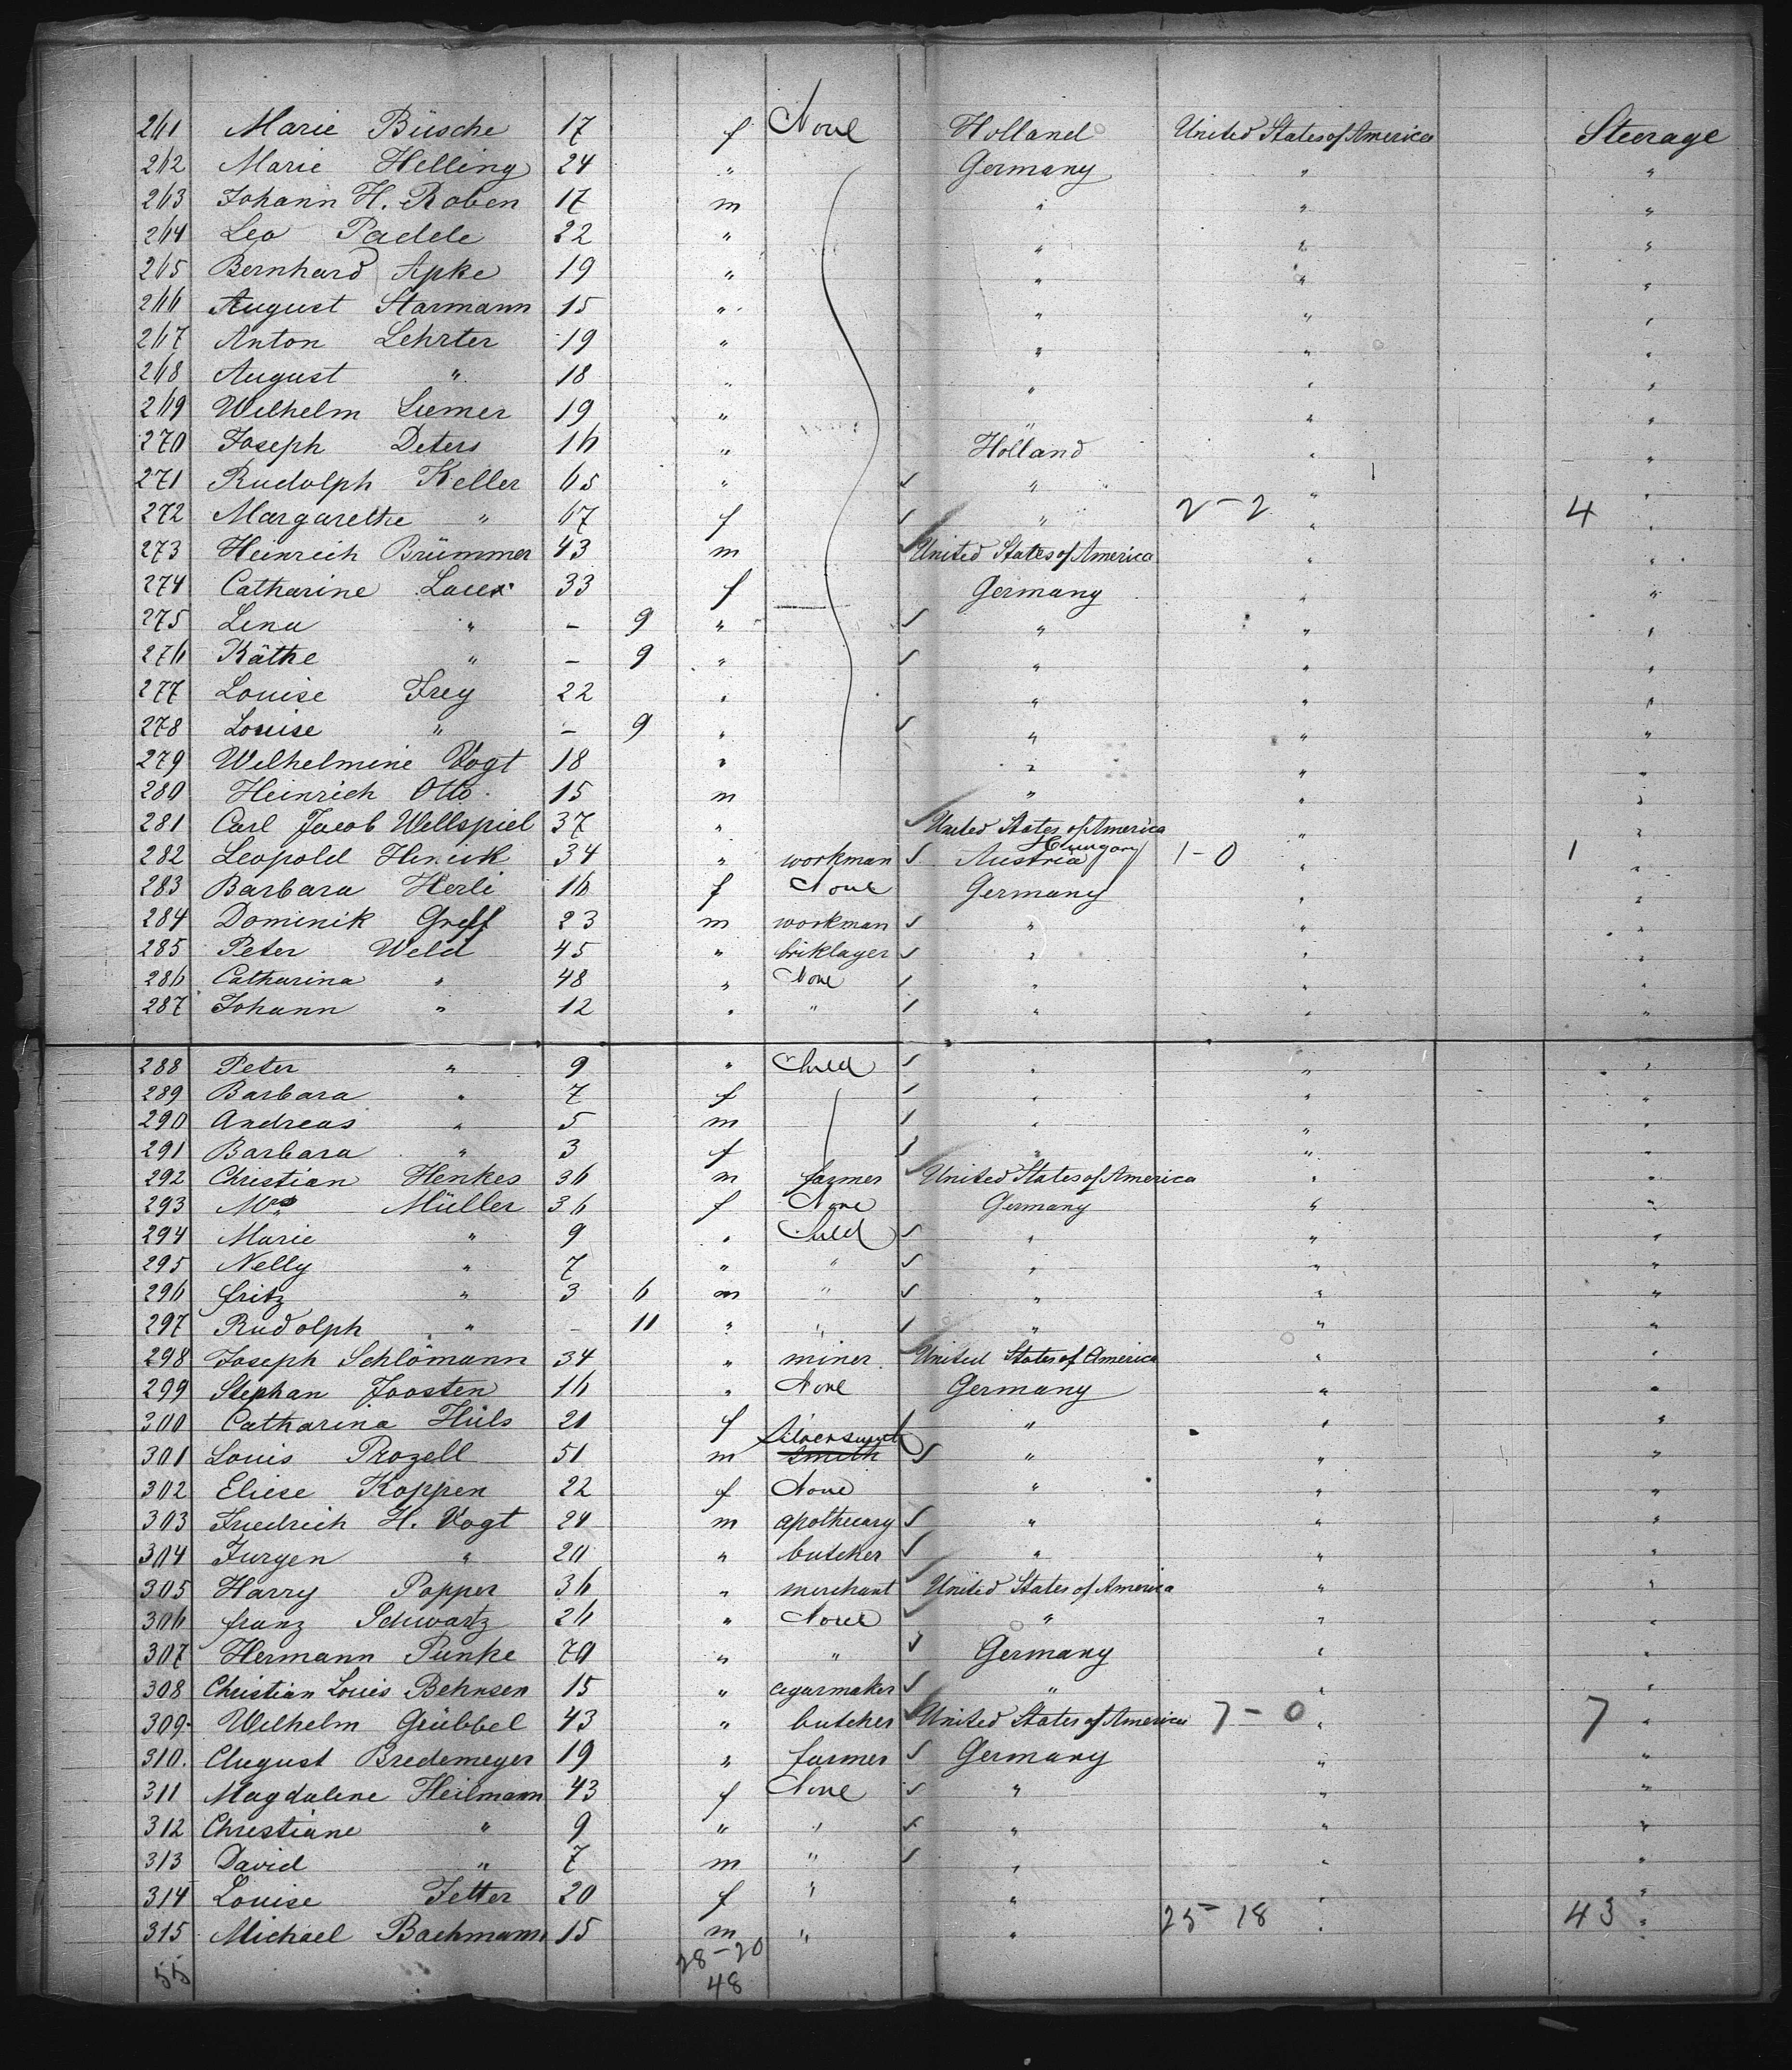 261 Marie Büsche 17 f None Holland United States of America Steerage
262 Marie Helling 24 " Germany " "
263 Johann H. Roben 17 m " " "
264 Leo Padele 22 " " " "
265 Bernhard Apke 19 " " " "
266 August Starmann 15 " " " "
267 Anton Lehrter 19 " " " "
268 August " 18 " " " "
269 Wilhelm Liemer 19 " " " "
270 Joseph Deters 16 " Holland " "
271 Rudolph Keller 65 " " " "
272 Margarethe " 67 f " 2-2 " 4 "
273 Heinrich Brümmer 43 m United States of America " "
274 Catharine 33 f Germany " "
275 Lena " - 9 " " " "
276 Käthe " - 9 " " " "
277 Louise Frey 22 " " " "
278 Louise " - 9 " " " "
279 Wilhelmine Vogt 18 " " " "
280 Heinrich Otto 15 m " " "
281 Carl Jacob Wellspiel 37 " United States of America " "
282 Leopold 34 " workman Austria Hungary 1-0 " 1 "
283 Barbara Herli 16 f None Germany " "
284 Dominik Greff 23 m workman " " "
285 Peter Weld 45 " briklayer " " "
286 Catharina " 48 " None " " "
287 Johann " 12 " " " " "
288 Peter " 9 " Child " " "
289 Barbara " 7 f " " "
290 Andreas " 5 m " " "
291 Barbara " 3 f " " "
292 Christian Henkes 36 m farmer United States of America " "
293 Mrs Müller 36 f None Germany " "
294 Marie " 9 " Child " " "
295 Nelly " 7 " " " " "
296 Fritz " 3 6 m " " " "
297 Rudolph " - 11 " " " " "
298 Joseph Schlömann 34 " miner United States of America " "
299 Stephan Joosten 16 " None Germany " "
300 Catharina Hüls 21 f " " "
301 Louis Prozell 51 m silversmith smith " " "
302 Eliese Koppen 22 f None " " "
303 Friedrich H. Vogt 24 m apothecary " " "
304 Jurgen " 20 " butcher " " "
305 Harry Popper 36 " merchant United States of America " "
306 Franz Schwartz 26 " None " " "
307 Hermann Punke 70 " " Germany " "
308 Christian Louis Behnsen 15 " cigarmaker " " "
309 Wilhelm Grübbel 43 " butcher United States of America 7-0 " 7 "
310. August Bredemeyer 19 " farmer Germany " "
311 Magdalene Heilmann 43 f None " " "
312 Christiane " 9 " " " " "
313 David " 7 m " " " "
314 Louise Fetter 20 f " " " "
315 Michael Bachmann 15 m " " 25-18 " 43 "
55 28-20
48